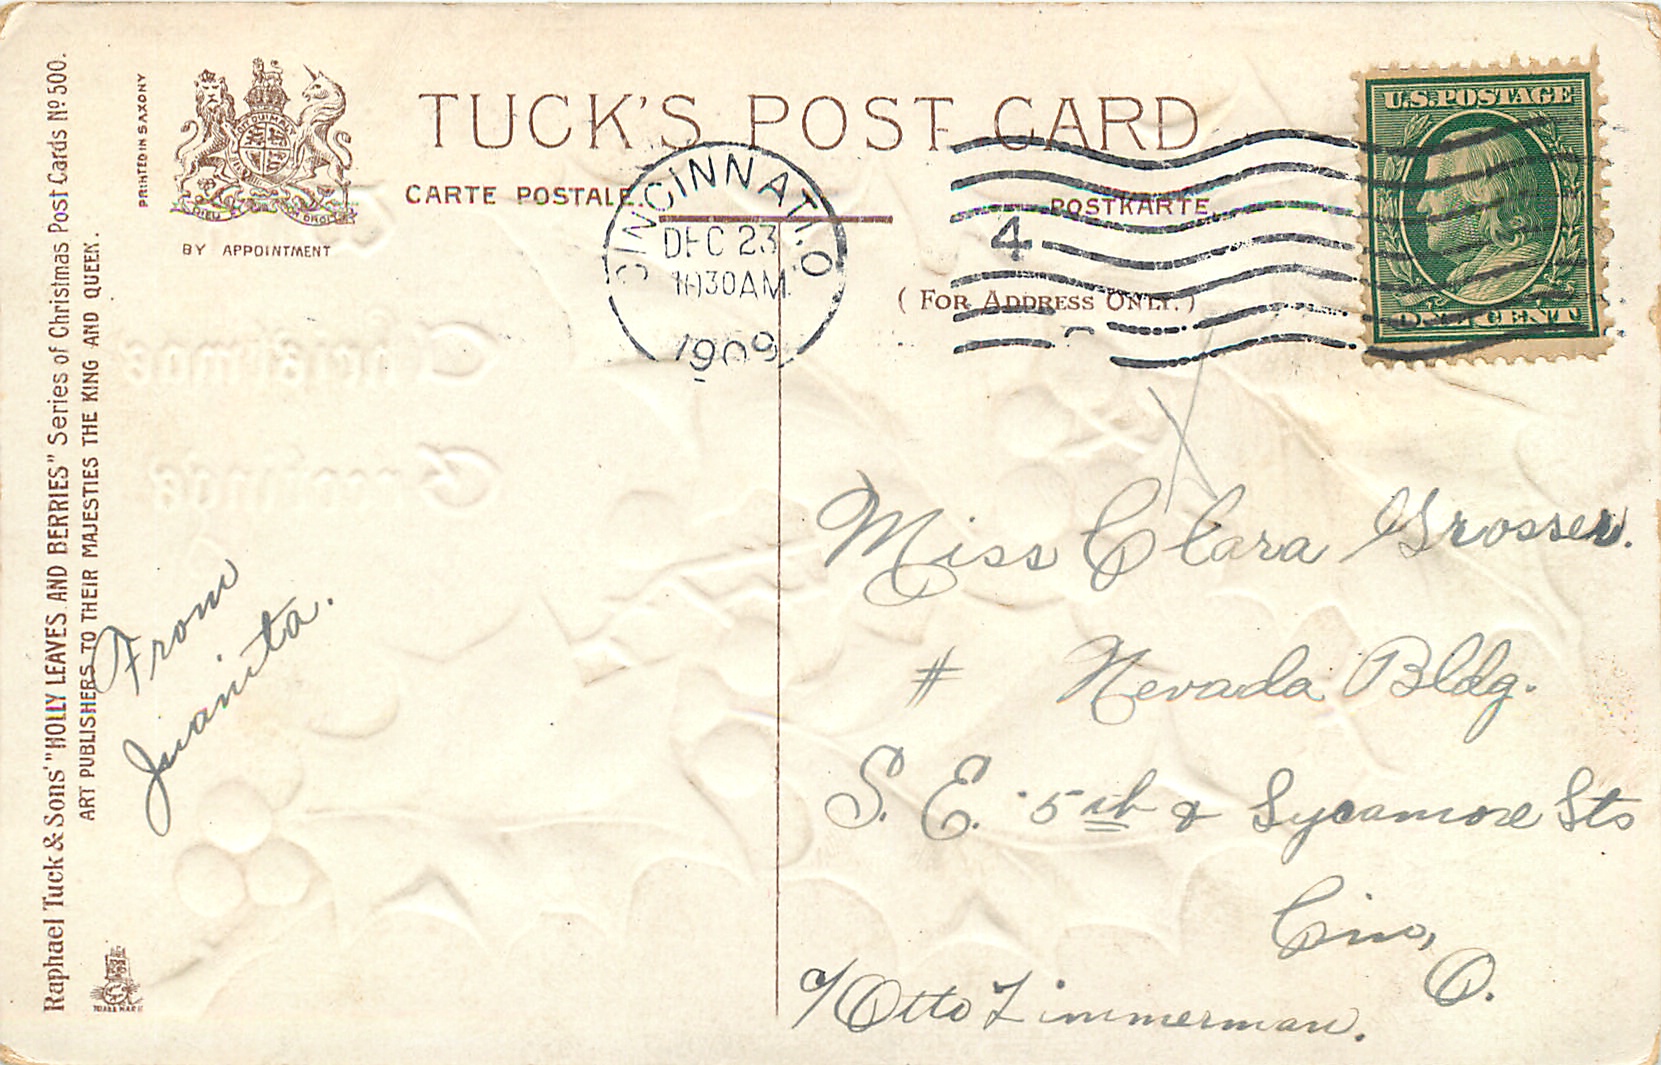 Raphael Tuck & Sons' "HOLLY LEAVES AND BERRIES" Series of Christmas Post Cards Nº 500.
ART PUBLISHERS TO THEIR MAJESTIES THE KING AND QUEEN.
PRINTED IN SAXONY
BY APPOINTMENT
TUCK'S POST CARD
CARTE POSTALE.
POSTKARTE.
(FOR ADDRESS ONLY.)
CINCINNATI.O.
DEC 23
1030AM
1909
4
U.S.POSTAGE
ONE CENT
Christmas
Greetings
From
Juanita.
Miss Clara Grosser.
# Nevada Bldg.
S. E. 5th & Sycamore Sts
Cin,
O.
c/ Otto Zimmerman.
TRADE MARK